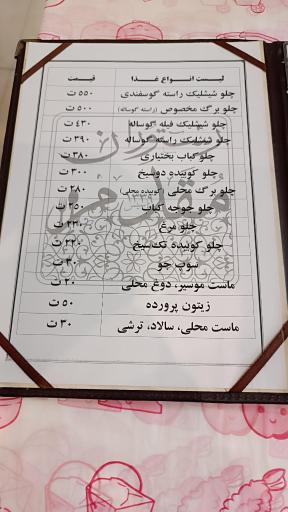 لیست انواع غذا قیمت
چلو شیشلیک راسته گوسفندی ۵۵۰ ت
چلو برگ مخصوص (راسته گوساله) ۵۰۰ ت
چلو شیشلیک فیله گوساله ۴۳۰ ت
چلو شیشلیک راسته گوساله ۳۹۰ ت
چلو کباب بختیاری ۳۸۰ ت
چلو کوبیده دوسیخ ۳۰۰ ت
چلو برگ محلی (کوبیده محلی) ۲۸۰ ت
چلو جوجه کباب ۲۵۰ ت
چلو مرغ ۲۳۰ ت
چلو کوبیده تک سیخ ۲۲۰ ت
سوپ جو ۳۰ ت
ماست موسیر، دوغ محلی ۲۰ ت
زیتون پرورده ۵۰ ت
ماست محلی، سالاد، ترشی ۳۰ ت
رستوران
مقدم